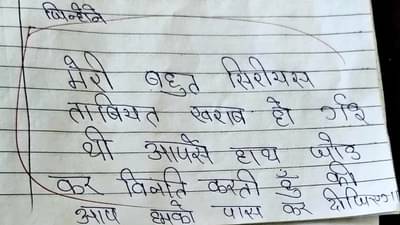 जिन्होंने
मेरी बहुत सिरीयस
ताबियत खराब हो गई
थी आपसे हाथ जोड
कर विनति करती हूँ की
आप हमको पास कर दीजिएगा